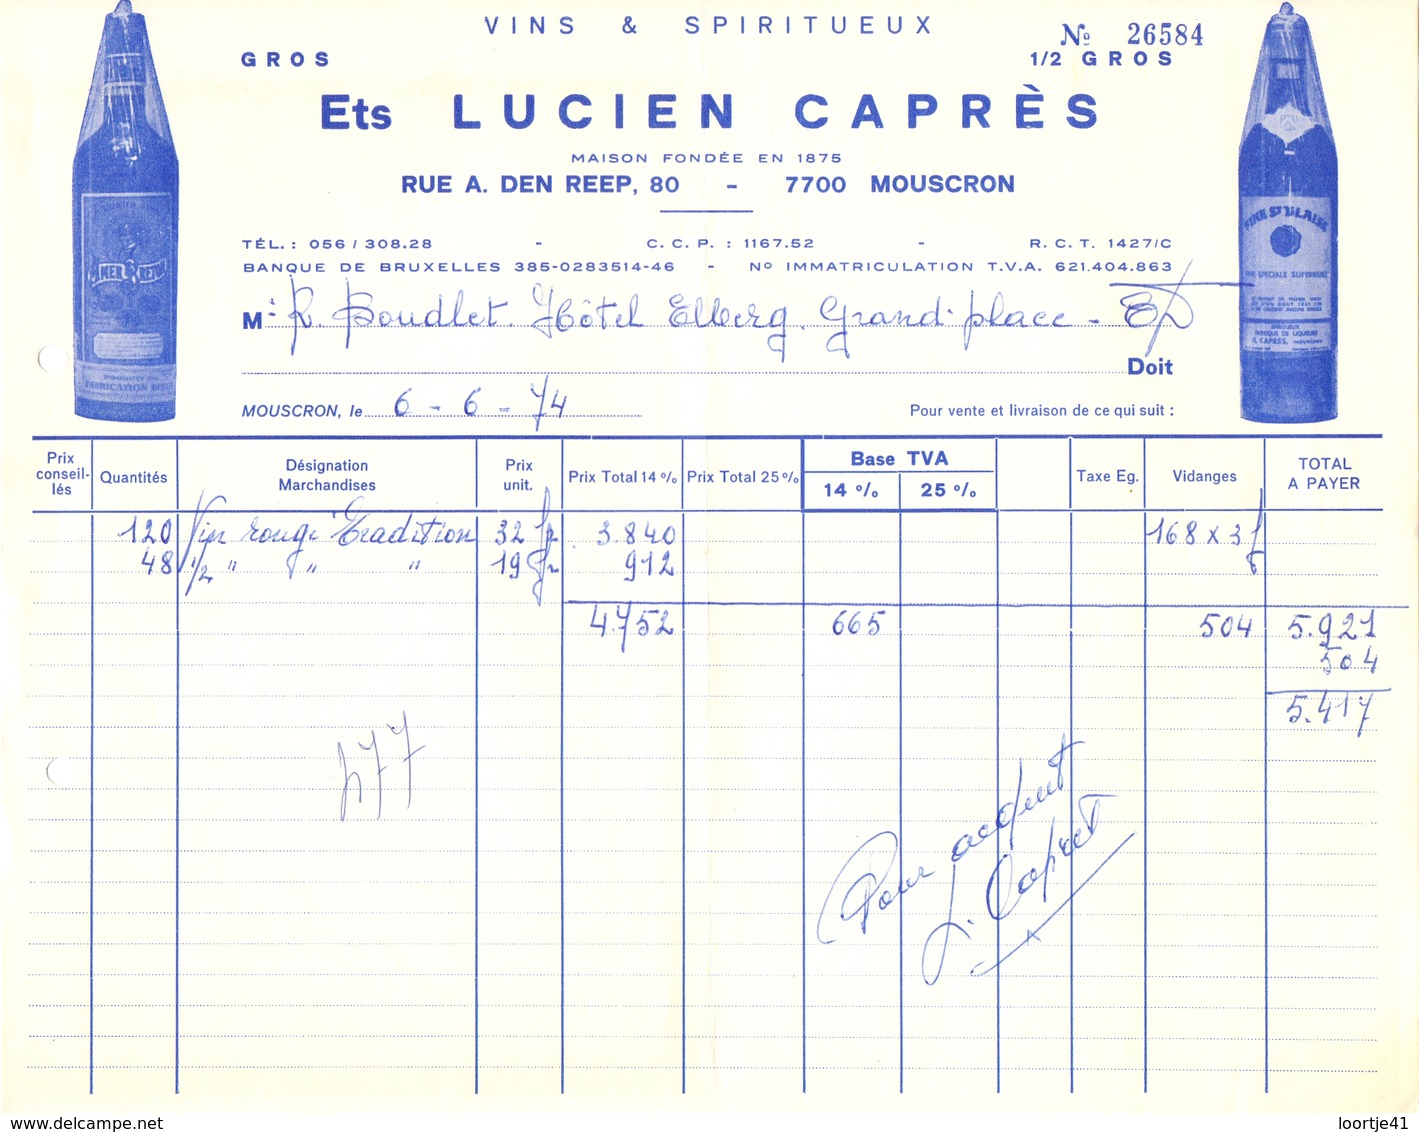 VINS & SPIRITUEUX
GROS
Nº 26584
1/2 GROS
Ets LUCIEN CAPRÈS
MAISON FONDÉE EN 1875
RUE A. DEN REEP, 80 - 7700 MOUSCRON
TÉL. : 056 / 308.28 - C. C. P. : 1167.52 - R. C. T. 1427/C
BANQUE DE BRUXELLES 385-0283514-46 - Nº IMMATRICULATION T.V.A. 621.404.863
M. R. Boudlet. Hôtel Elberg. Grand'place -
Doit
MOUSCRON, le 6 - 6 - 74
Pour vente et livraison de ce qui suit :
Prix conseil-lés Quantités Désignation Marchandises Prix unit. Prix Total 14 % Prix Total 25 % Base TVA 14 % 25 % Taxe Eg. Vidanges TOTAL A PAYER
120 Vin rouge Tradition 32 fr 3.840 168 x 3 f
48 1/2 " " " 19 fr 912
4.752 665 504 5.921
504
5.417
477
Pour acquit
L. Caprès
FINE St BLAISE
FINE SPECIALE SUPERIEURE
SPIRITUEUX
FABRIQUE DE LIQUEURS
FABRICATION BELGE
www.delcampe.net
loortje41